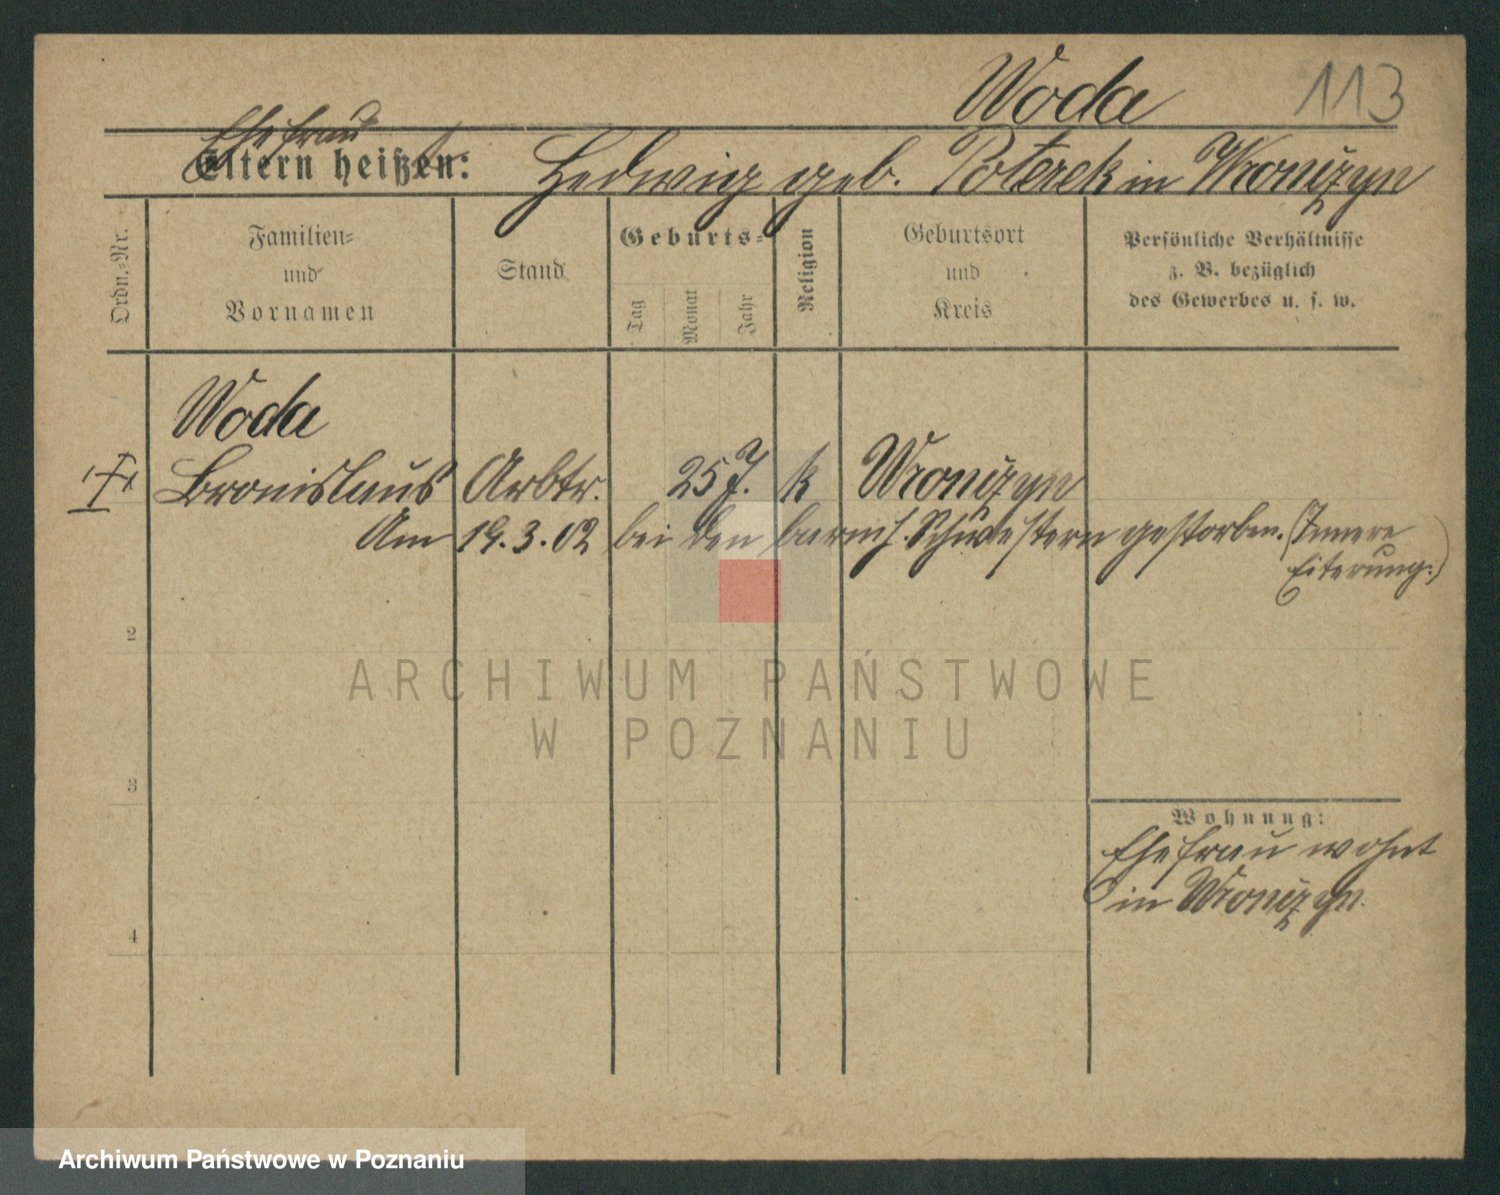 Woda 113
Ehefrau
Eltern heißen: Hedwig geb. Poterek in Wronczyn
Ordn.-Nr.
Familien-
und
Vornamen
Stand
Geburts-
Tag
Monat
Jahr
Religion
Geburtsort
und
Kreis
Persönliche Verhältnisse
z. B. bezüglich
des Gewerbes u. s. w.
Woda
Bronislaus Arbtr. 25 J. k Wronczyn
Am 19.3.02 bei den barmh. Schwestern gestorben. (Innere
Eiterung.)
2
3
4
Wohnung:
Ehefrau wohnt
in Wronczyn.
ARCHIWUM PAŃSTWOWE
W POZNANIU
Archiwum Państwowe w Poznaniu